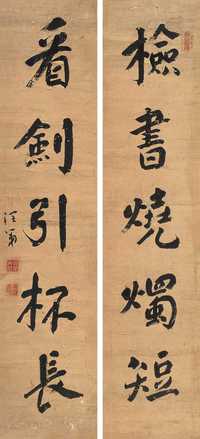 檢書燒燭短
看劍引杯長